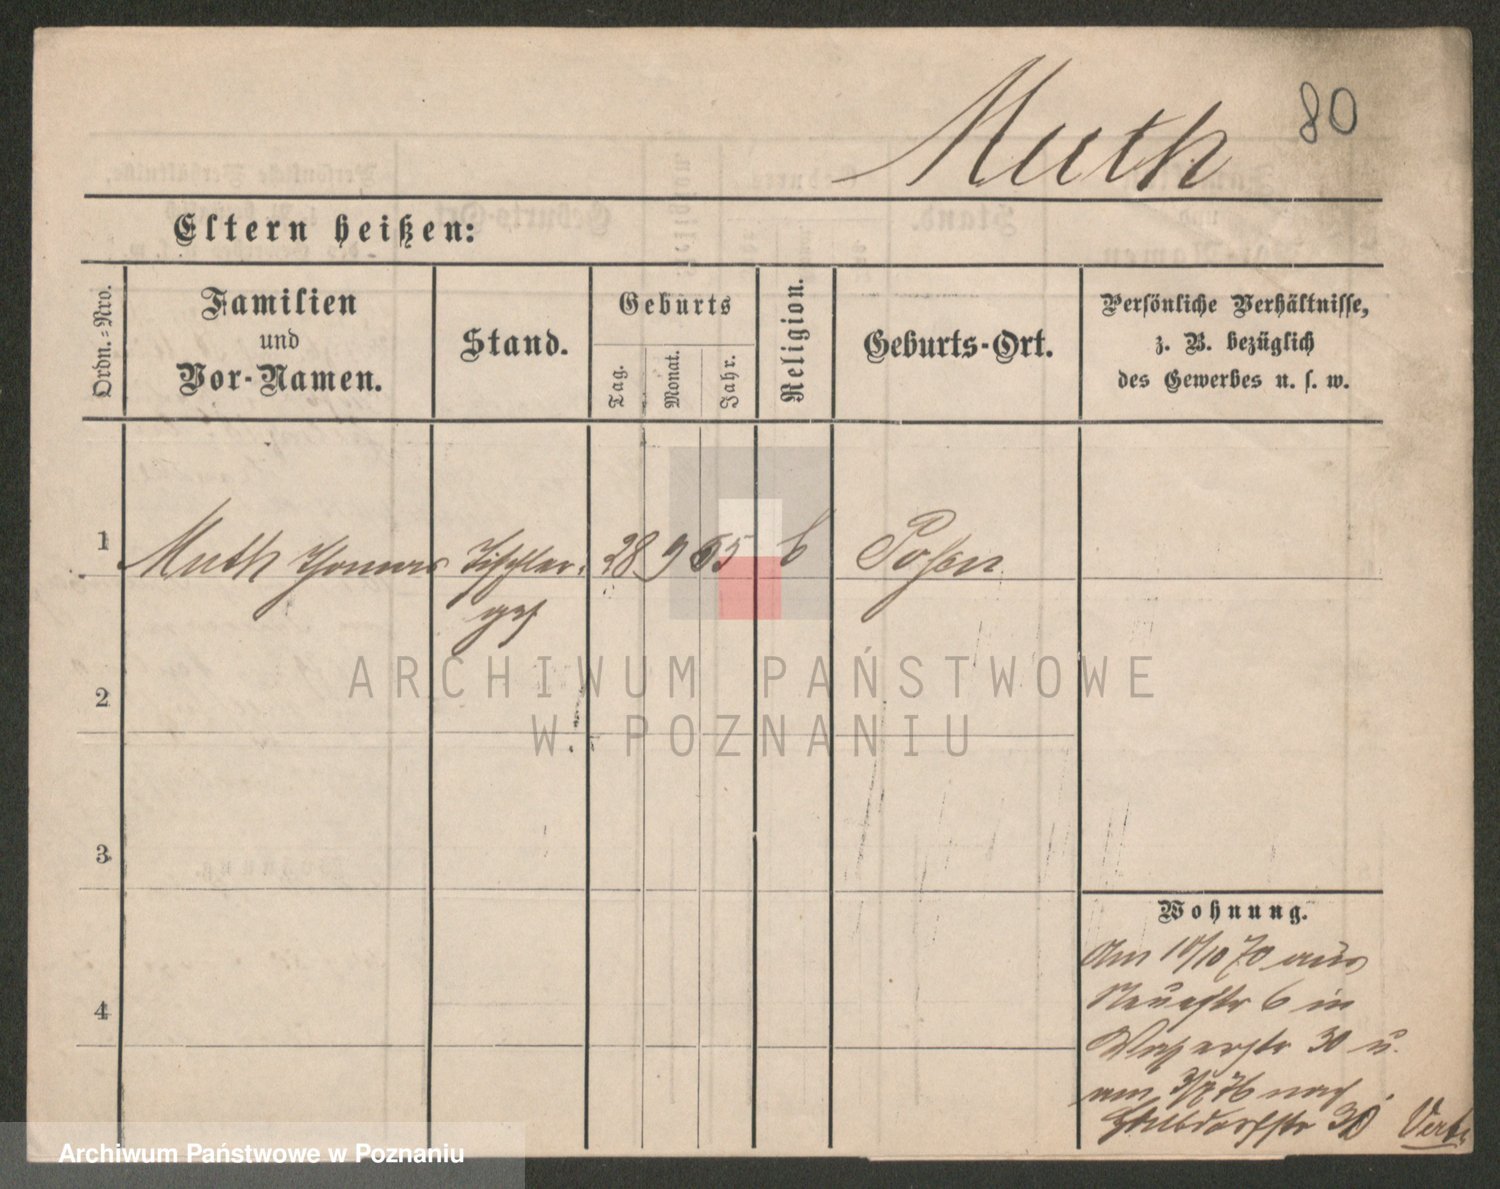 Muth
80
Eltern heißen:
Ordn.-Nro.
Familien
und
Vor-Namen.
Stand.
Geburts
Tag.
Monat.
Jahr.
Religion.
Geburts-Ort.
Persönliche Verhältnisse,
z. B. bezüglich
des Gewerbes u. s. w.
1
Muth Thomas
Tischler-
ges
28 9 65
Posen
2
3
4
Wohnung.
Am 10/10 70 aus
Neuestr 6 in
Wasserstr 30 u.
am nach
30
ARCHIWUM PAŃSTWOWE
W POZNANIU
Archiwum Państwowe w Poznaniu